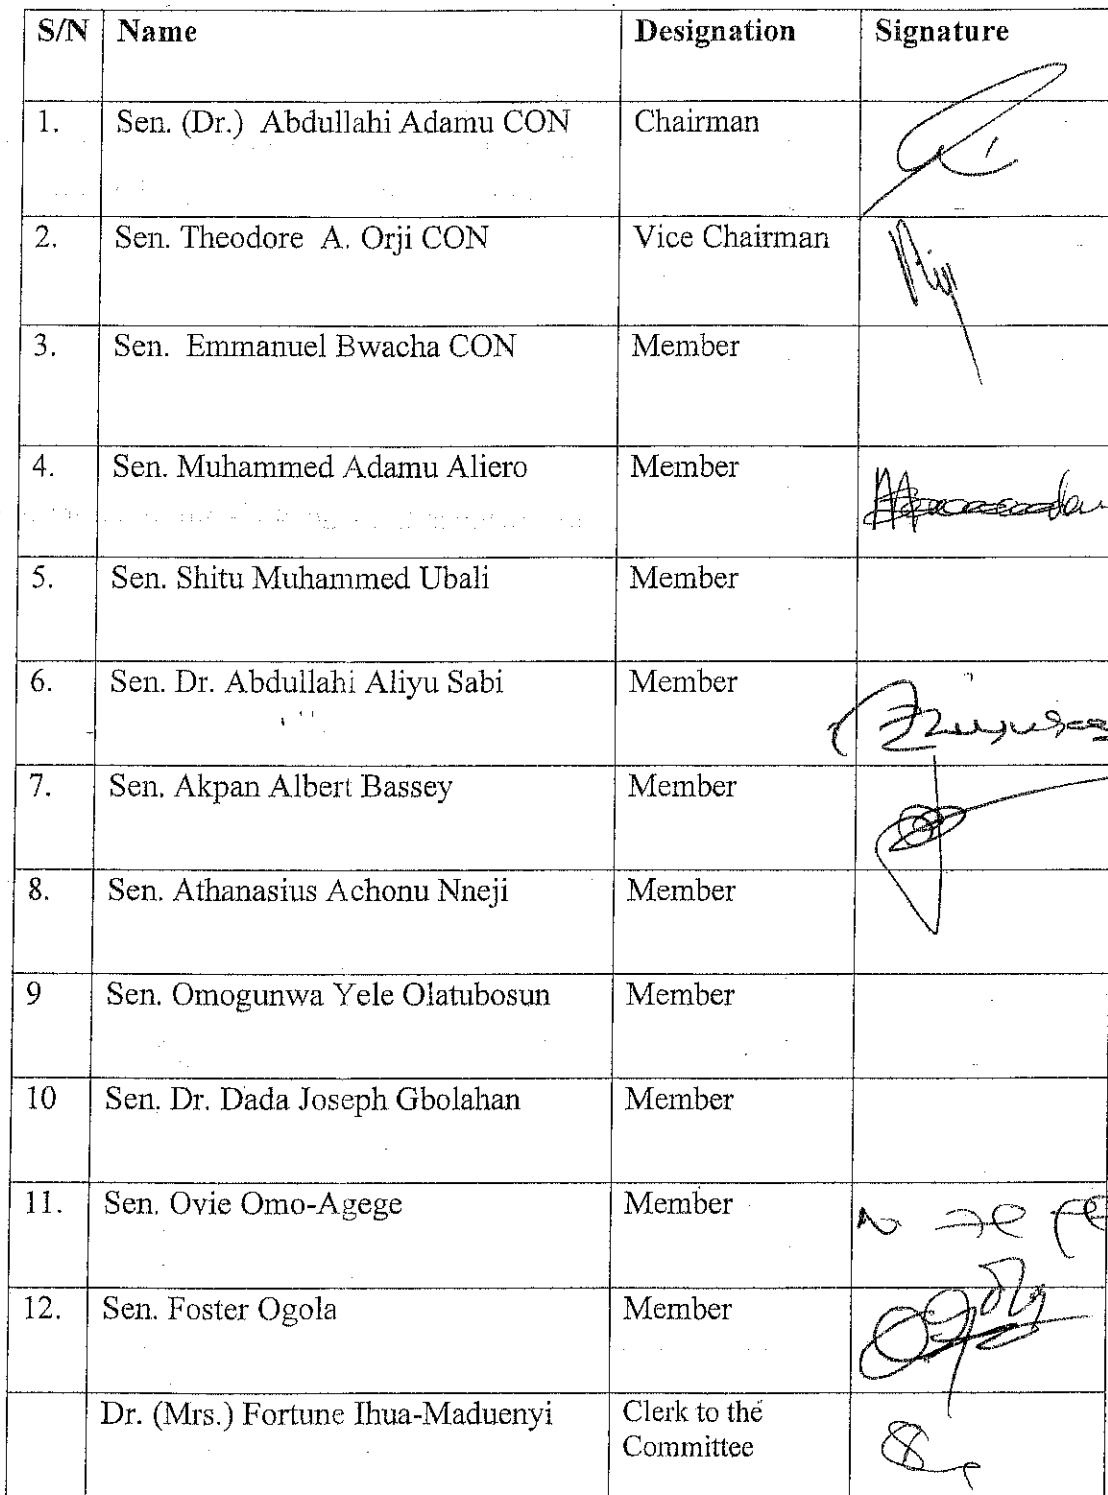 S/N Name Designation Signature
1. Sen. (Dr.) Abdullahi Adamu CON Chairman
2. Sen. Theodore A. Orji CON Vice Chairman
3. Sen. Emmanuel Bwacha CON Member
4. Sen. Muhammed Adamu Aliero Member
5. Sen. Shitu Muhammed Ubali Member
6. Sen. Dr. Abdullahi Aliyu Sabi Member
7. Sen. Akpan Albert Bassey Member
8. Sen. Athanasius Achonu Nneji Member
9 Sen. Omogunwa Yele Olatubosun Member
10 Sen. Dr. Dada Joseph Gbolahan Member
11. Sen. Ovie Omo-Agege Member
12. Sen. Foster Ogola Member
Dr. (Mrs.) Fortune Ihua-Maduenyi Clerk to the
Committee